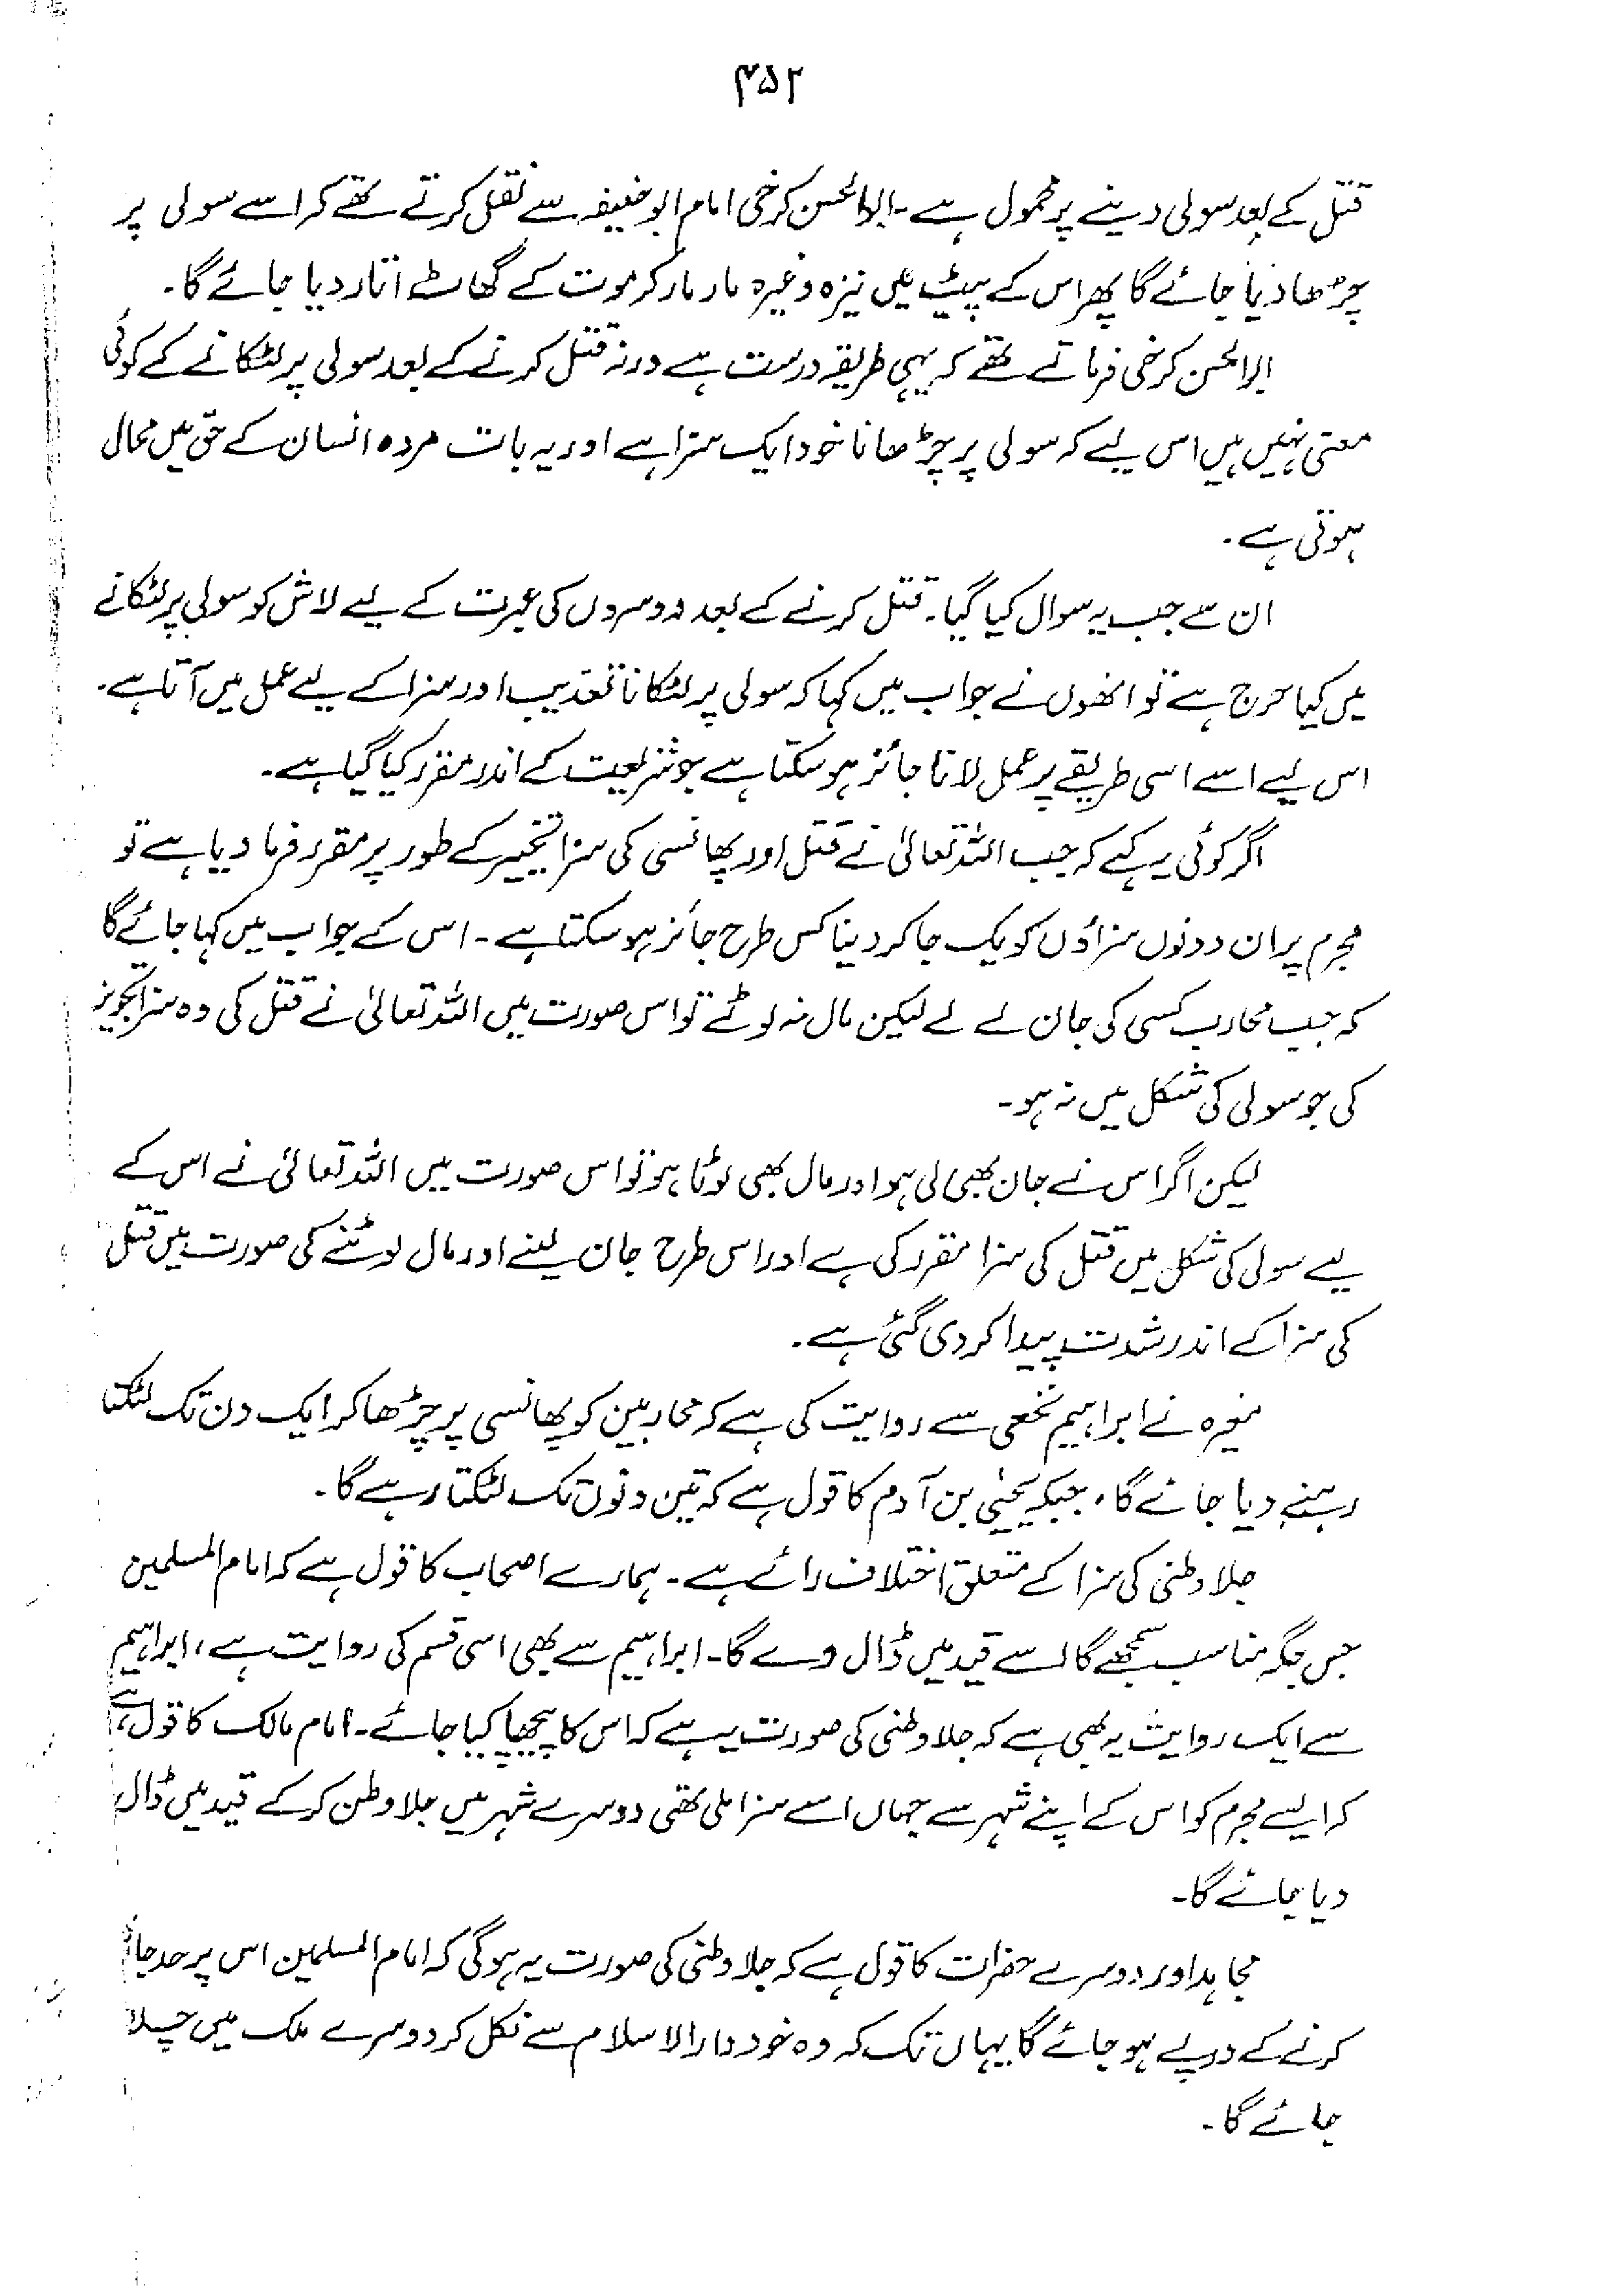 ۴۵۲
قتل کے بعد سولی دینے پر محمول ہے۔ ابوالحسن کرخی امام ابوحنیفہ سے نقل کرتے تھے کہ اسے سولی پر
چڑھا دیا جائے گا پھر اس کے پیٹ میں نیزہ وغیرہ مار مار کر موت کے گھاٹ اتار دیا جائے گا۔
ابوالحسن کرخی فرماتے تھے کہ یہی طریقہ درست ہے ورنہ قتل کرنے کے بعد سولی پر لٹکانے کے کوئی
معنی نہیں ہیں اس لیے کہ سولی پر چڑھانا خود ایک سزا ہے اور یہ بات مردہ انسان کے حق میں محال
ہوتی ہے۔
ان سے جب یہ سوال کیا گیا۔ قتل کرنے کے بعد دوسروں کی عبرت کے لیے لاش کو سولی پر لٹکانے
میں کیا حرج ہے تو انھوں نے جواب میں کہا کہ سولی پر لٹکانا تعذیب اور سزا کے لیے عمل میں آتا ہے۔
اس لیے اسے اسی طریقے پر عمل لانا جائز ہو سکتا ہے جو شریعت کے اندر مقرر کیا گیا ہے۔
اگر کوئی یہ کہے کہ جب اللہ تعالیٰ نے قتل اور پھانسی کی سزا تخییر کے طور پر مقرر فرما دیا ہے تو
مجرم پر ان دونوں سزاؤں کو یک جا کر دینا کس طرح جائز ہو سکتا ہے۔ اس کے جواب میں کہا جائے گا
کہ جب محارب کسی کی جان لے لے لیکن مال نہ لوٹے تو اس صورت میں اللہ تعالیٰ نے قتل کی وہ سزا تجویز
کی جو سولی کی شکل میں نہ ہو۔
لیکن اگر اس نے جان بھی لی ہو اور مال بھی لوٹا ہو تو اس صورت میں اللہ تعالیٰ نے اس کے
لیے سولی کی شکل میں قتل کی سزا مقرر کی ہے اور اس طرح جان لینے اور مال لوٹنے کی صورت میں قتل
کی سزا کے اندر شدت پیدا کر دی گئی ہے۔
مغیرہ نے ابراہیم نخعی سے روایت کی ہے کہ محاربین کو پھانسی پر چڑھا کر ایک دن تک لٹکتا
رہنے دیا جائے گا، جبکہ یحییٰ بن آدم کا قول ہے کہ تین دنوں تک لٹکتا رہے گا۔
جلا وطنی کی سزا کے متعلق اختلاف رائے ہے۔ ہمارے اصحاب کا قول ہے کہ امام المسلمین
جس جگہ مناسب سمجھے گا اسے قید میں ڈال دے گا۔ ابراہیم سے بھی اسی قسم کی روایت ہے، ابراہیم
سے ایک روایت یہ بھی ہے کہ جلا وطنی کی صورت یہ ہے کہ اس کا پیچھا کیا جائے۔ امام مالک کا قول ہے
کہ ایسے مجرم کو اس کے اپنے شہر سے جہاں اسے سزا ملی تھی دوسرے شہر میں جلا وطن کر کے قید میں ڈال
دیا جائے گا۔
مجاہد اور دوسرے حضرات کا قول ہے کہ جلا وطنی کی صورت یہ ہو گی کہ امام المسلمین اس پر حد
کرنے کے درپے ہو جائے گا یہاں تک کہ وہ خود دارالاسلام سے نکل کر دوسرے ملک میں چلا
جائے گا۔